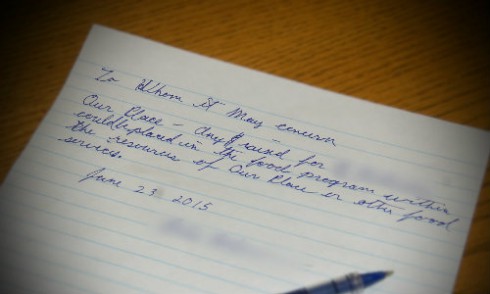 To Whom It May concern
Our Place - Any $ raised for
could be placed in the food program within
the resources of Our Place or other food
services.
June 23 2015